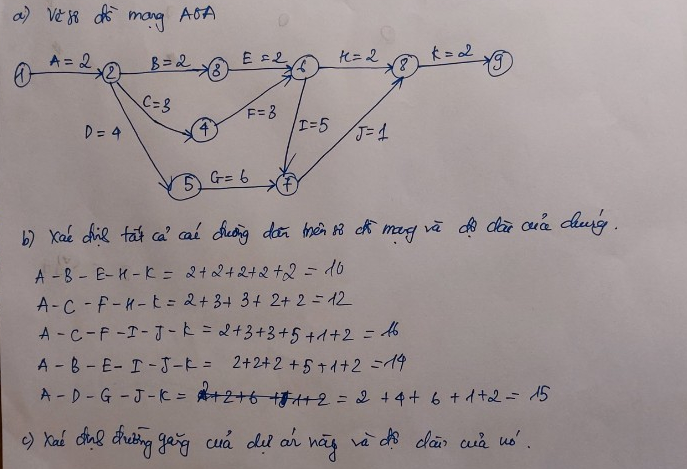 a) Vẽ sơ đồ mạng AOA
A = 2 B = 2 E = 2 H = 2 K = 2
1 2 3 6 8 9
C = 3 4 F = 3 I = 5 J = 1
D = 4 5 G = 6 7
b) Xác định tất cả các đường dẫn trên sơ đồ mạng và độ dài của chúng.
A - B - E - H - K = 2+2+2+2+2 = 10
A - C - F - H - K = 2+3+3+2+2 = 12
A - C - F - I - J - K = 2+3+3+5+1+2 = 16
A - B - E - I - J - K = 2+2+2+5+1+2 = 14
A - D - G - J - K = = 2 + 4 + 6 + 1 + 2 = 15
c) Xác định đường găng của dự án này và độ dài của nó.